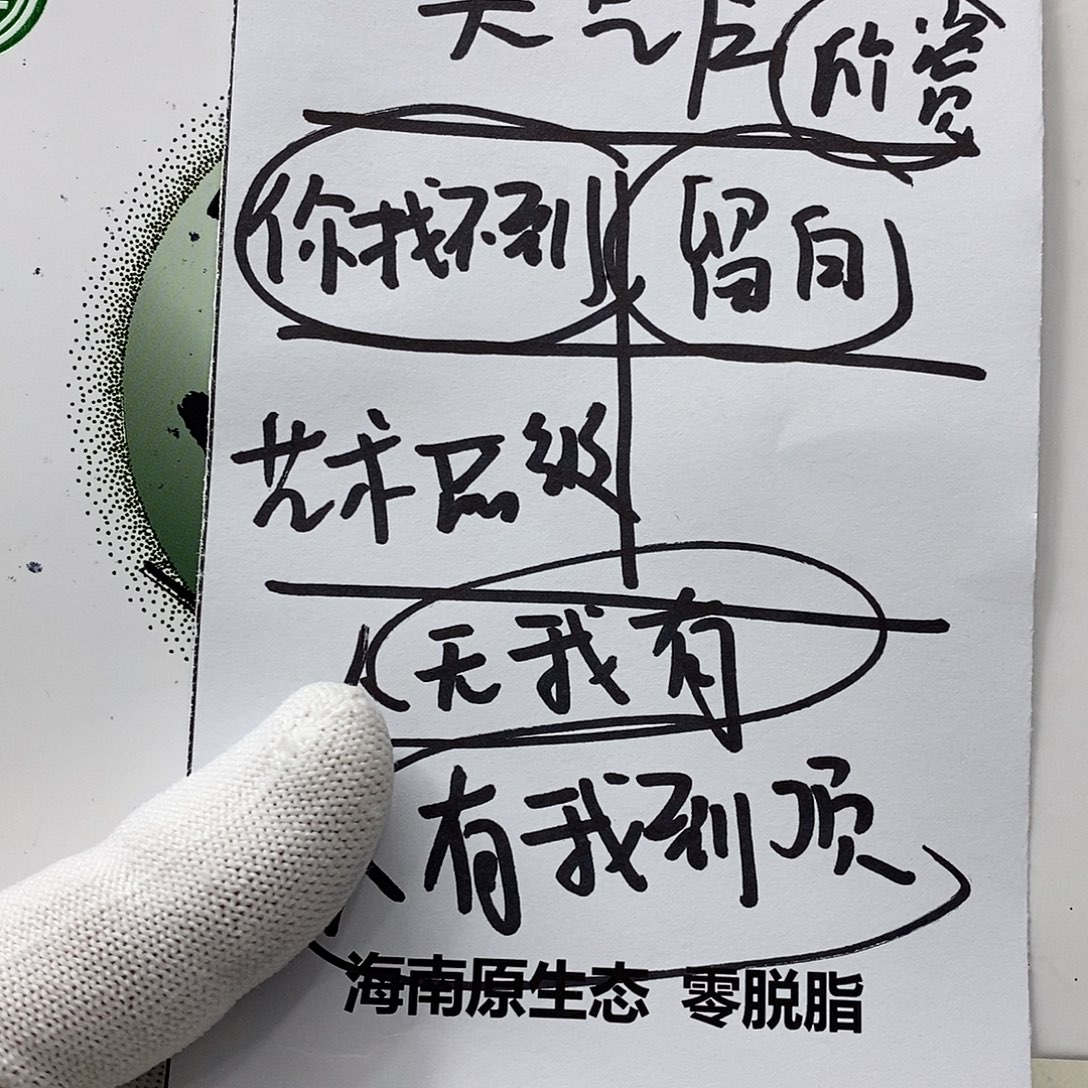 你找不到 留白
艺术品级
人无我有
人有我到顶
海南原生态 零脱脂